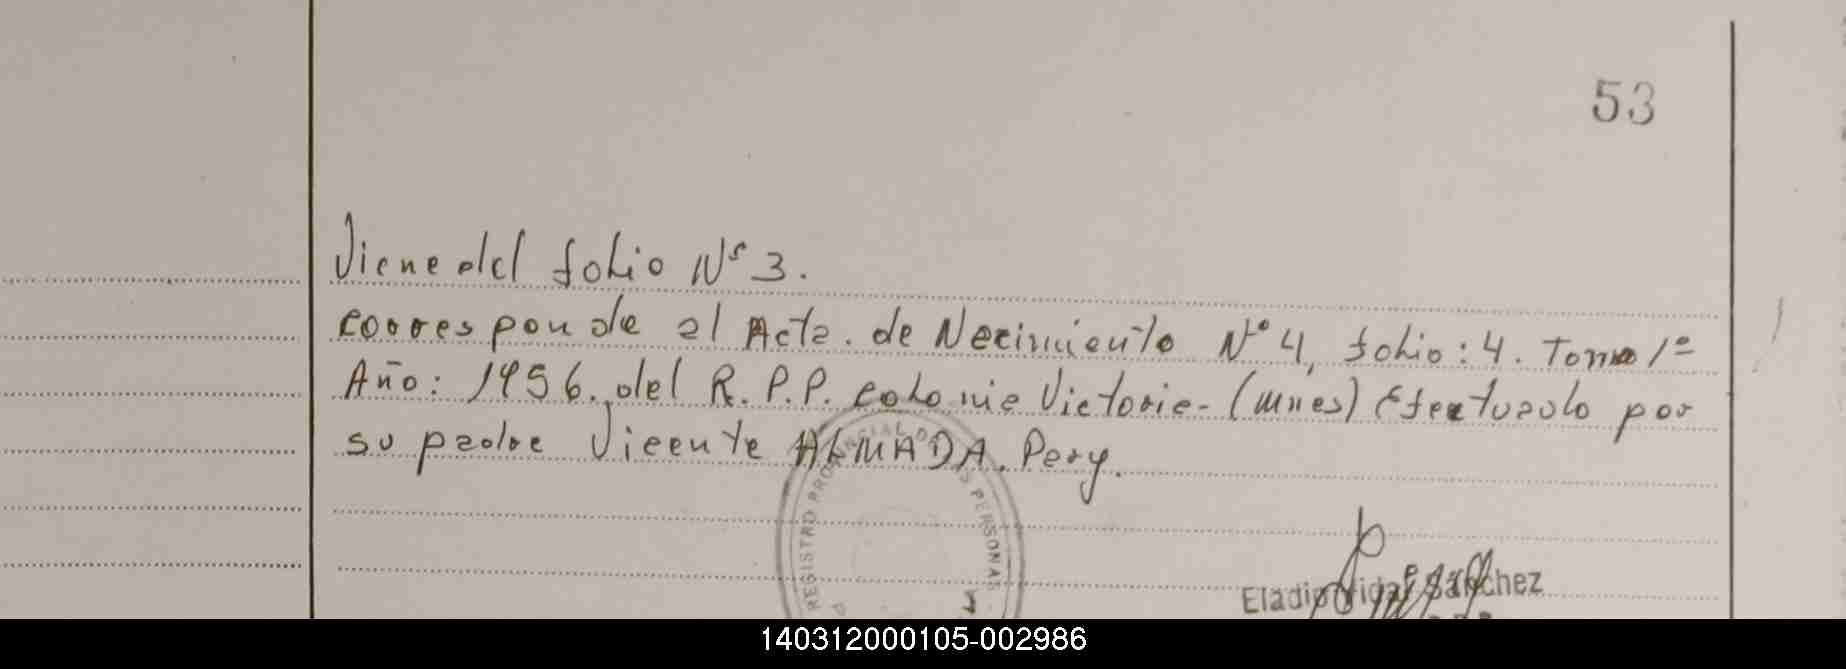 53
Viene del folio Nº 3.
corresponde al Acta. de Nacimiento Nº 4, folio: 4. Tomo 1º
Año: 1956. del R. P.P. colonia Victoria - (Mnes) Efectuado por
su padre Vicente ALMADA. Pery.
REGISTRO PROVINCIAL DE LAS PERSONAS
Eladio Vidal Sánchez
140312000105-002986